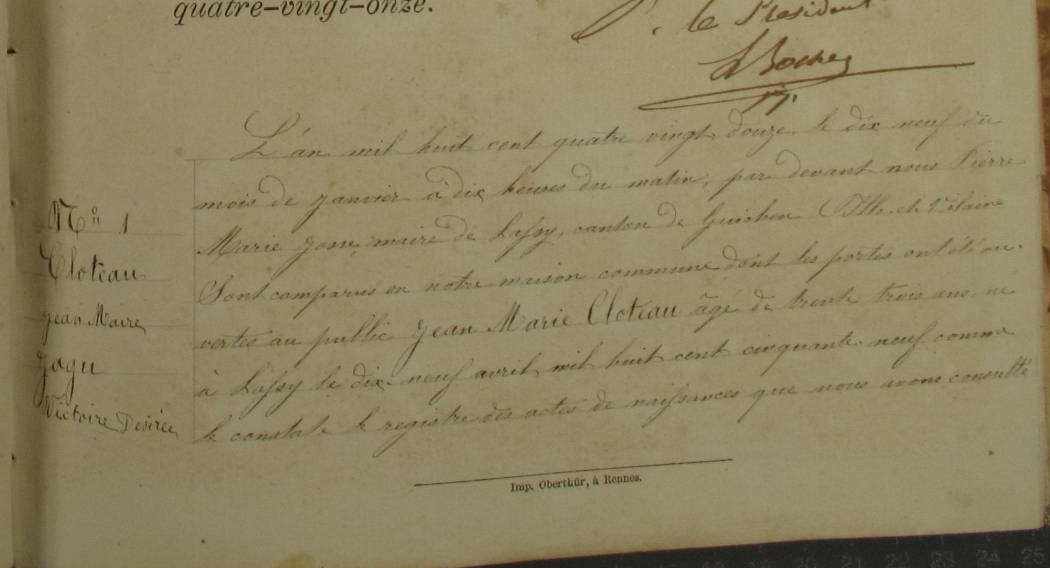 quatre-vingt-onze.
P. le Président
L'an mil huit cent quatre vingt douze, le dix neuf du
mois de janvier à dix heures du matin, par devant nous Pierre
Marie Josse, maire de Lassy, canton de Guichen (Ille-et-Vilaine
Sont comparus en notre maison commune dont les portes ont été ou-
vertes au public Jean Marie Cloteau âgé de trente trois ans, né
à Lassy le dix-neuf avril mil huit cent cinquante-neuf comme
le constate le registre des actes de naissances que nous avons consulté
N° 1
Cloteau
Jean Marie
Jogu
Victoire Désirée
Imp. Oberthür, à Rennes.
22 23 24 25